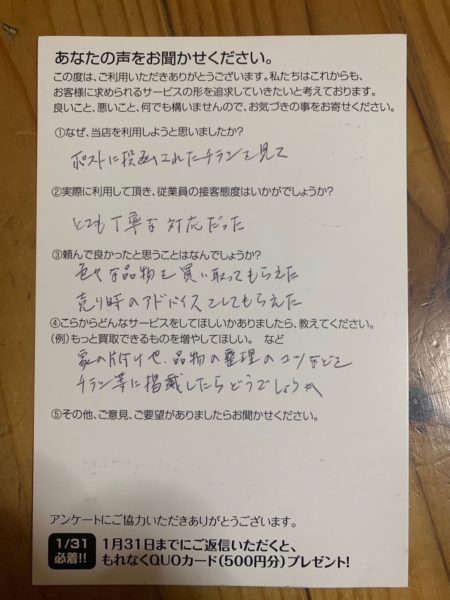 あなたの声をお聞かせください。
この度は、ご利用いただきありがとうございます。私たちはこれからも、
お客様に求められるサービスの形を追求していきたいと考えております。
良いこと、悪いこと、何でも構いませんので、お気づきの事をお寄せください。
①なぜ、当店を利用しようと思いましたか?
ポストに投函されたチラシを見て
②実際に利用して頂き、従業員の接客態度はいかがでしょうか?
とても丁寧な対応だった
③頼んで良かったと思うことはなんでしょうか?
色々な品物を買い取ってもらえた
売り時のアドバイスをしてもらえた
④こらからどんなサービスをしてほしいかありましたら、教えてください。
(例)もっと買取できるものを増やしてほしい。 など
家の片付けや、品物の整理のコツなどを
チラシ等に掲載したらどうでしょうか
⑤その他、ご意見、ご要望がありましたらお聞かせください。
アンケートにご協力いただきありがとうございます。
1/31
必着!!
1月31日までにご返信いただくと、
もれなくQUOカード(500円分)プレゼント!